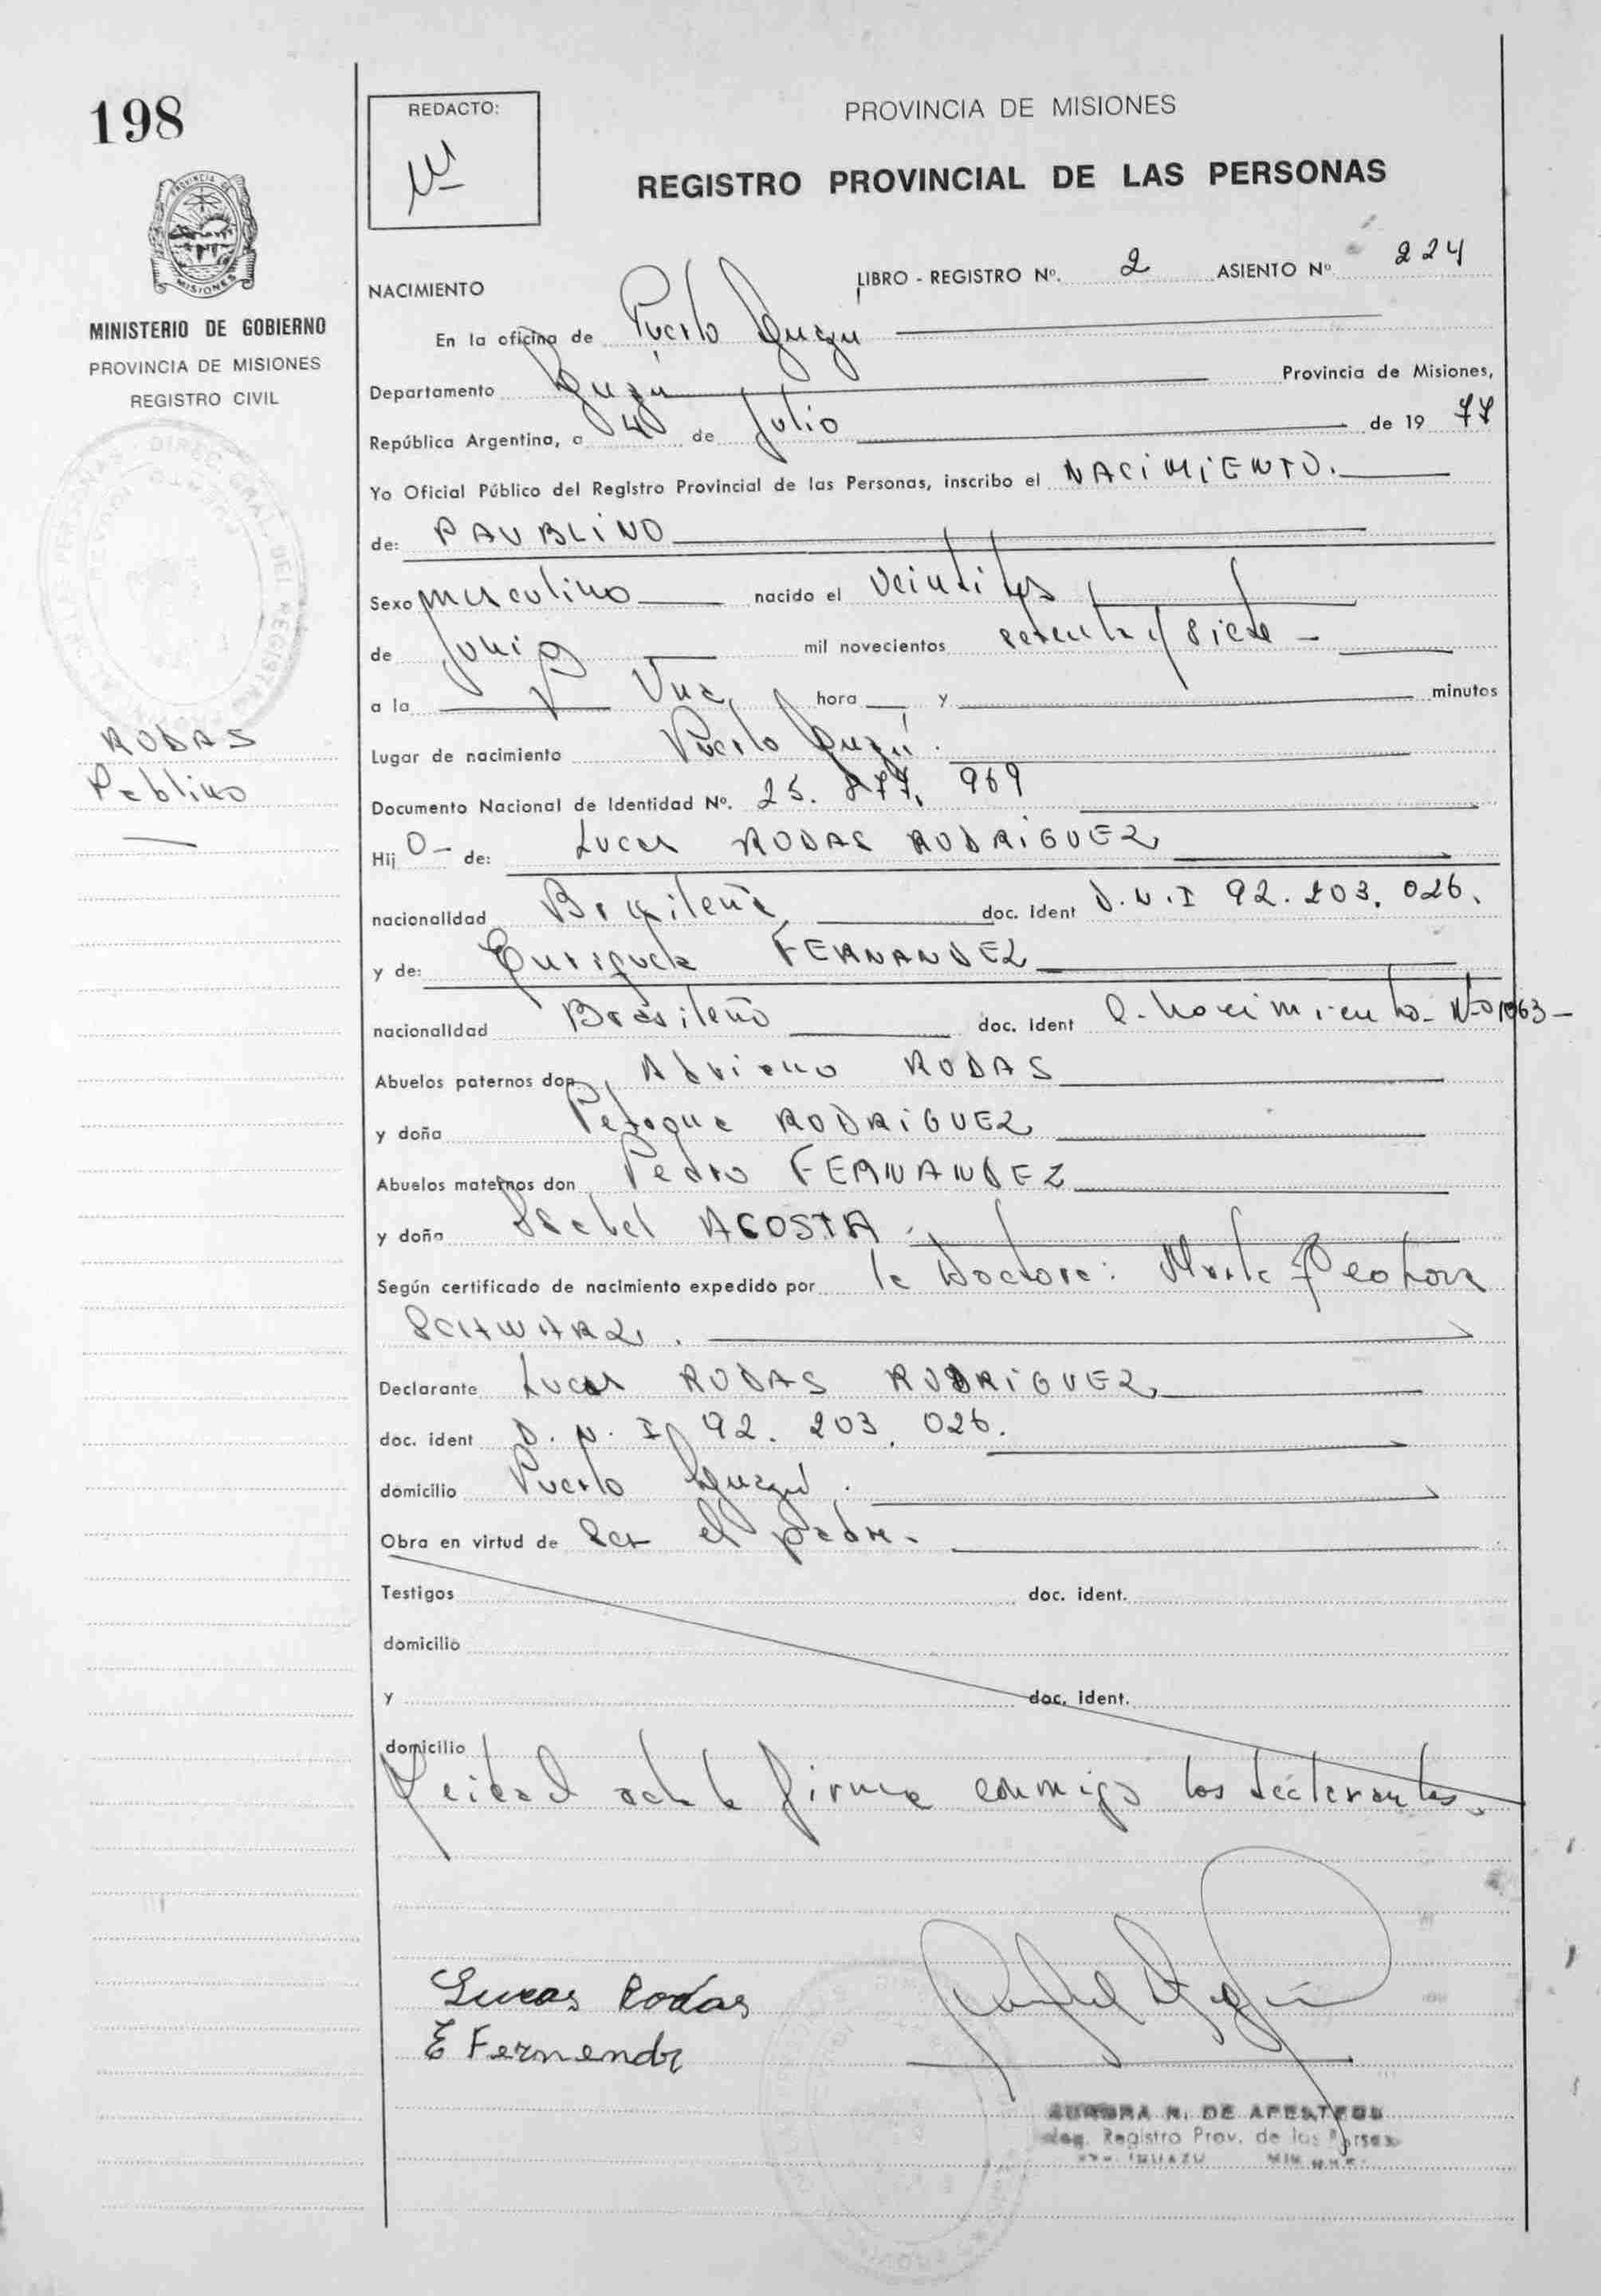 198
REDACTO:
PROVINCIA DE MISIONES
REGISTRO PROVINCIAL DE LAS PERSONAS
MISIONES
MINISTERIO DE GOBIERNO
PROVINCIA DE MISIONES
REGISTRO CIVIL
RODAS
Pablino
NACIMIENTO
LIBRO - REGISTRO Nº. 2 ASIENTO Nº 224
En la oficina de Puerto Iguazú
Departamento Iguazú Provincia de Misiones,
República Argentina, a 4 de Julio de 19 77
Yo Oficial Público del Registro Provincial de las Personas, inscribo el NACIMIENTO.
de: PAUBLINO
Sexo masculino nacido el veintitrés
de Junio mil novecientos setenta y siete
a la Una hora y minutos
Lugar de nacimiento Puerto Iguazú.
Documento Nacional de Identidad Nº. 25.877.969
Hij O- de: Lucas RODAS RODRIGUEZ
nacionalidad Brasileña doc. ident D.N.I 92.203.026.
y de: Enriqueta FERNANDEZ
nacionalidad Brasileño doc. ident
Abuelos paternos don Adriano RODAS
y doña RODRIGUEZ
Abuelos maternos don Pedro FERNANDEZ
y doña Isabel ACOSTA.
Según certificado de nacimiento expedido por la Doctora: Marta
SCHWARZ.
Declarante Lucas RODAS RODRIGUEZ
doc. ident D.N.I 92.203.026.
domicilio Puerto Iguazú.
Obra en virtud de Ser el padre.
Testigos doc. ident.
domicilio
y doc. ident.
domicilio
Leída el acta la firma conmigo los declarantes.
Lucas Rodas
E Fernendz
Registro Prov. de las
IGUAZU